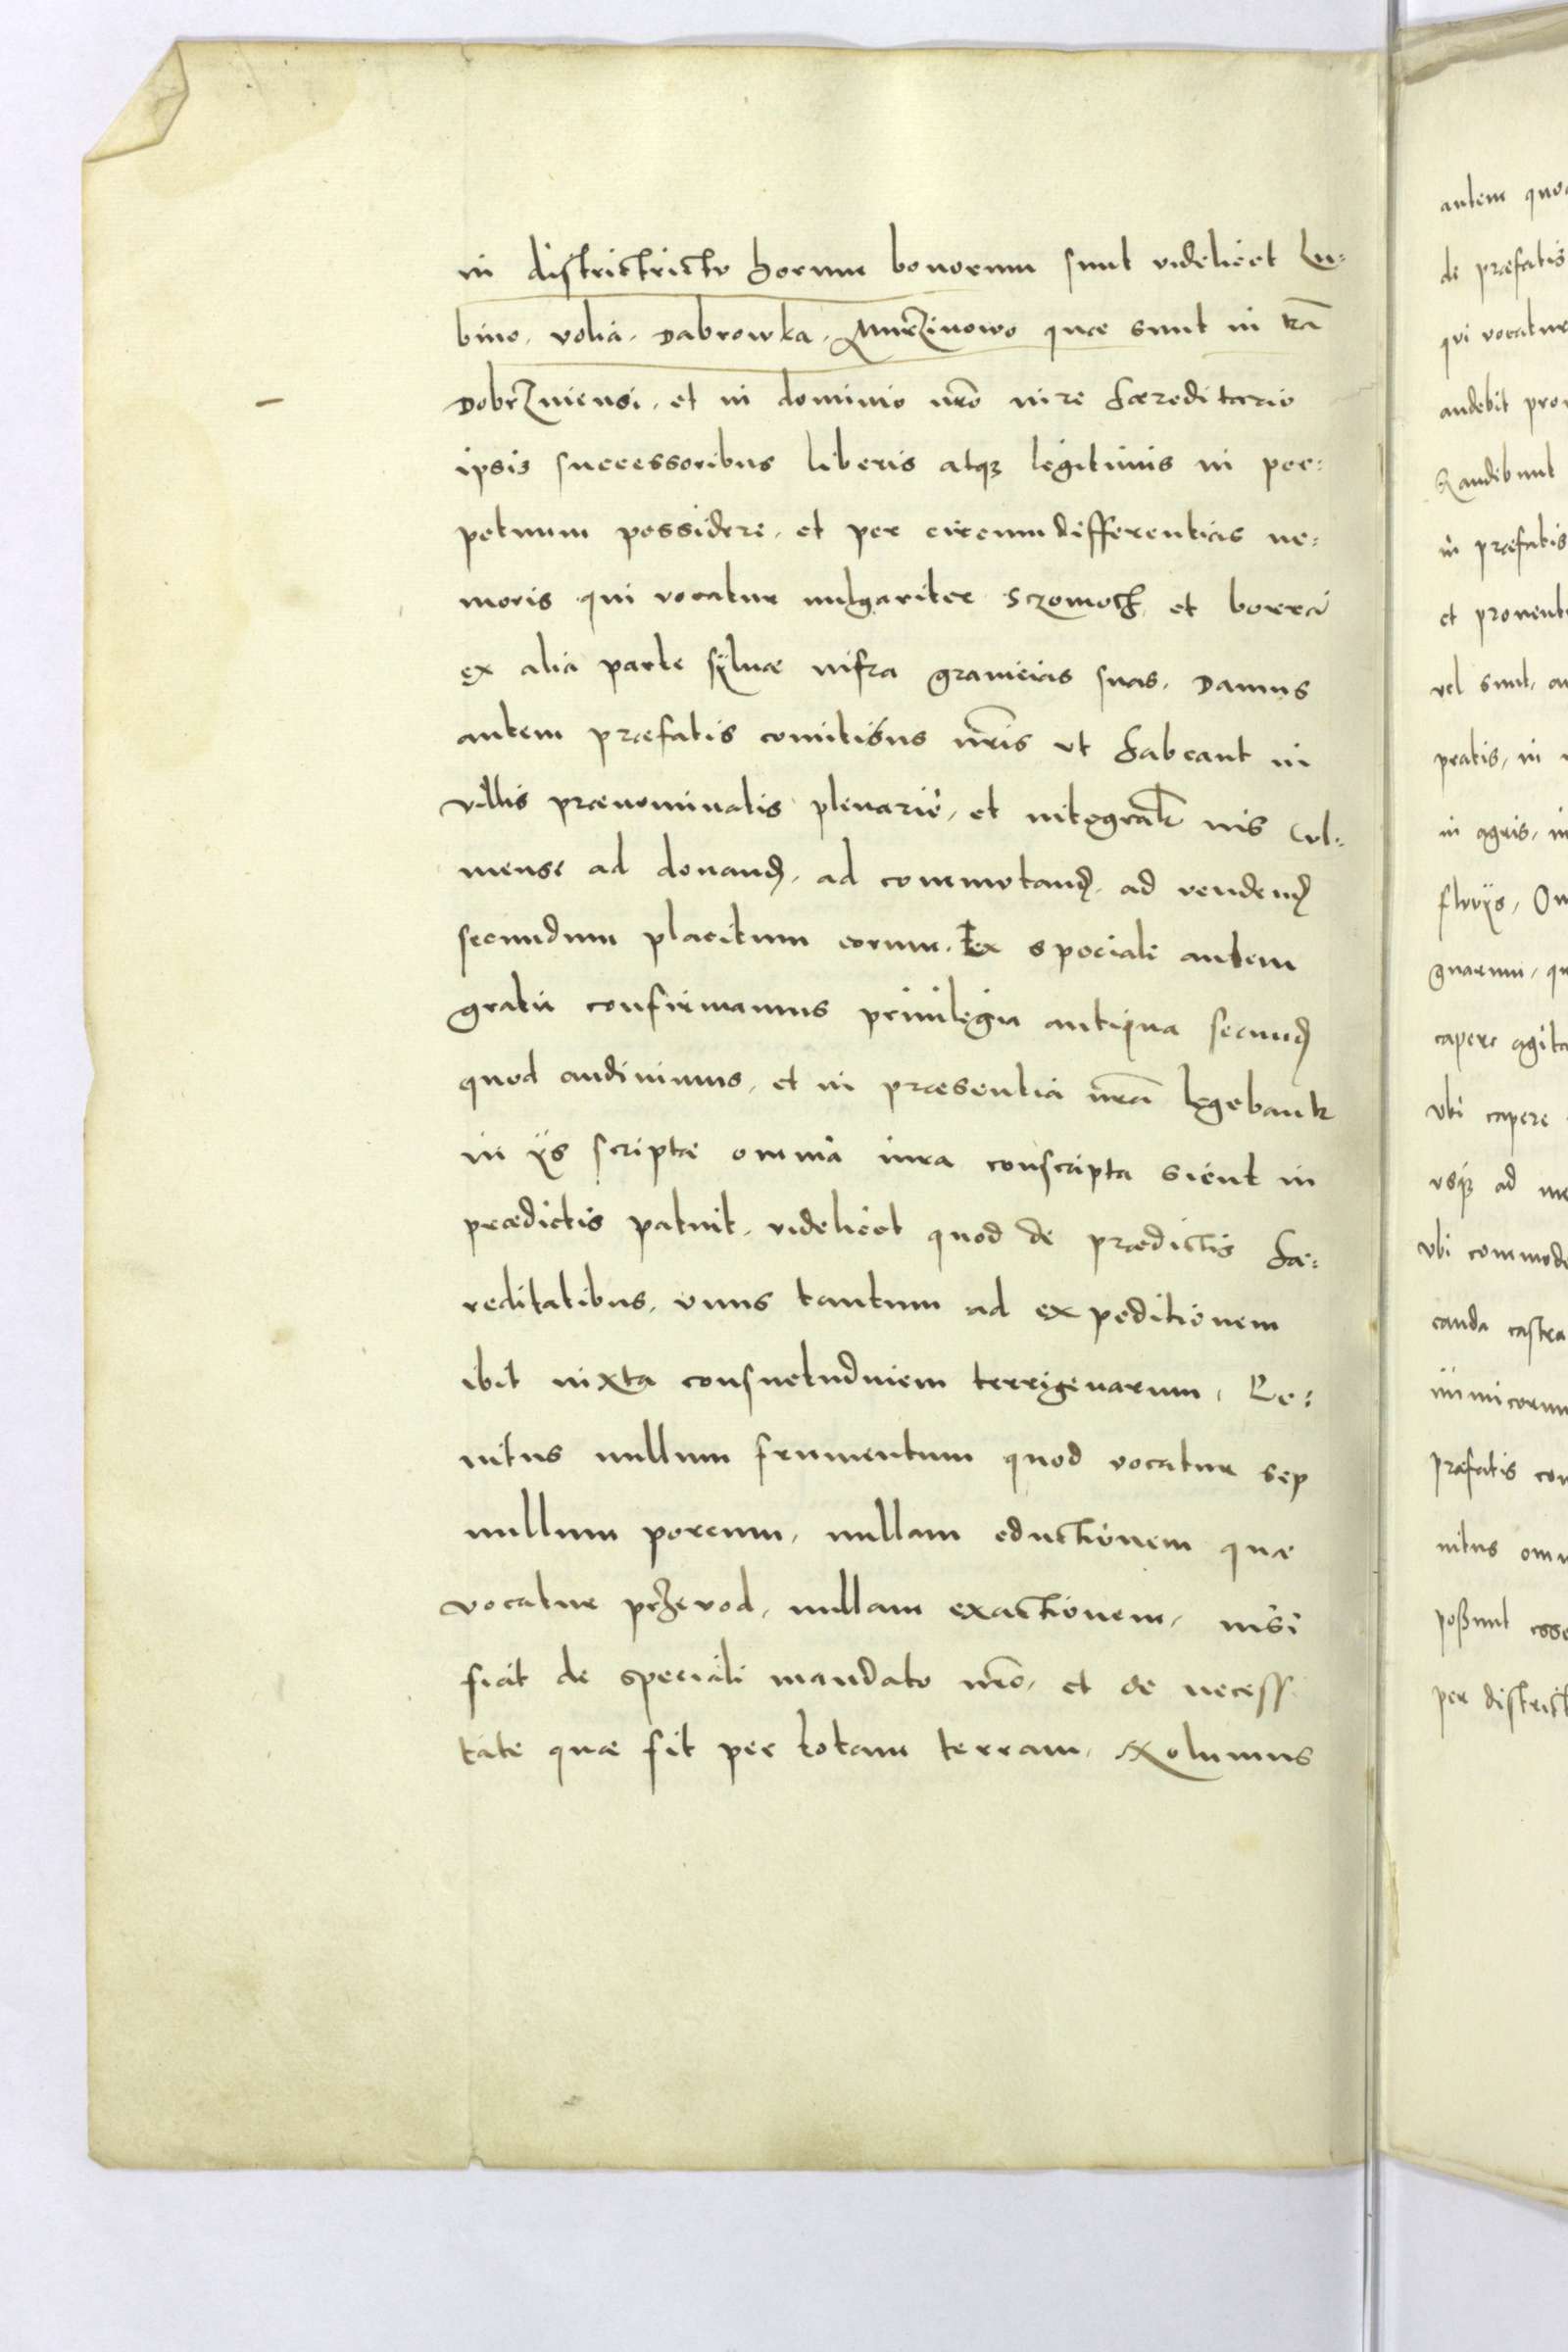 in districtricto horum bonorum sunt videlicet Lu:
bino, volia, Dabrowka, Murzinowo quae sunt in tra
Dobrzniensi, et in dominio nro iure haereditario
ipsis successoribus liberis atqz legitimis in per:
petuum possidere, et per circumdifferentias ne:
moris qui vocatur vulgariter Sczomoth, et borra
ex alia parte sylvae infra granicias suas, Damus
autem praefatis comitibus nris ut habeant in
villis praenominatis plenarie, et integralr ius Cul:
mense ad donand, ad commotand, ad vendend
secundum placitum eorum, Ex speciali autem
gratia confirmamus privilegia antiqua secund
quod audivimus, et in praesentia nra legebantr
in ijs scriptae omnia iura conscripta sicut in
praedictis patuit, videlicet quod de praedictis hae:
reditatibus, unus tantum ad expeditionem
ibit iuxta consuetudinem terrigenarum, Pe:
nitus nullum frumentum quod vocatur sep
nullum porcum, nullam eductionem quae
vocatur przevod, nullam exactionem, nisi
fiat de speciali mandato nro, et de necessi
tate quae fit per totam terram, Volumus
autem quo
de praefatis
qui vocatur
audebit pro
Randibunt
in praefatis
et provent
vel sunt, a
pratis, in
in agris, in
fluvijs, O
gnarum, qu
capere agita
Ubi capere
usqz ad me
Ubi commode
canda castra
inimicorum
praefatis co
nitus om
possunt esse
per district